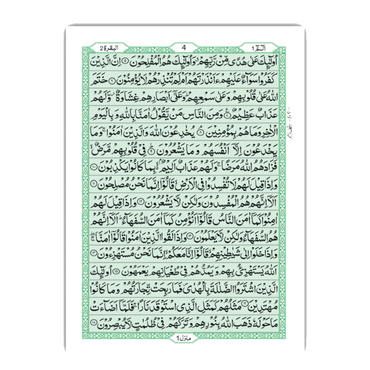 الٓمّٓ ١
4
البقرة ٢
اُولٰٓئِكَ عَلٰى هُدًى مِّنْ رَّبِّهِمْ وَاُولٰٓئِكَ هُمُ الْمُفْلِحُوْنَ ۝ اِنَّ الَّذِيْنَ
كَفَرُوْا سَوَآءٌ عَلَيْهِمْ ءَاَنْذَرْتَهُمْ اَمْ لَمْ تُنْذِرْهُمْ لَا يُؤْمِنُوْنَ ۝ خَتَمَ
اللّٰهُ عَلٰى قُلُوْبِهِمْ وَعَلٰى سَمْعِهِمْ وَعَلٰٓى اَبْصَارِهِمْ غِشَاوَةٌ وَّلَهُمْ
عَذَابٌ عَظِيْمٌ ۝ وَمِنَ النَّاسِ مَنْ يَّقُوْلُ اٰمَنَّا بِاللّٰهِ وَبِالْيَوْمِ
الْاٰخِرِ وَمَا هُمْ بِمُؤْمِنِيْنَ ۝ يُخٰدِعُوْنَ اللّٰهَ وَالَّذِيْنَ اٰمَنُوْا وَمَا
يَخْدَعُوْنَ اِلَّآ اَنْفُسَهُمْ وَمَا يَشْعُرُوْنَ ۝ فِيْ قُلُوْبِهِمْ مَّرَضٌ
فَزَادَهُمُ اللّٰهُ مَرَضًا وَلَهُمْ عَذَابٌ اَلِيْمٌۢ بِمَا كَانُوْا يَكْذِبُوْنَ ۝
وَاِذَا قِيْلَ لَهُمْ لَا تُفْسِدُوْا فِي الْاَرْضِ قَالُوْٓا اِنَّمَا نَحْنُ مُصْلِحُوْنَ ۝
اَلَآ اِنَّهُمْ هُمُ الْمُفْسِدُوْنَ وَلٰكِنْ لَّا يَشْعُرُوْنَ ۝ وَاِذَا قِيْلَ لَهُمْ
اٰمِنُوْا كَمَآ اٰمَنَ النَّاسُ قَالُوْٓا اَنُؤْمِنُ كَمَآ اٰمَنَ السُّفَهَآءُ اَلَآ اِنَّهُمْ
هُمُ السُّفَهَآءُ وَلٰكِنْ لَّا يَعْلَمُوْنَ ۝ وَاِذَا لَقُوا الَّذِيْنَ اٰمَنُوْا قَالُوْٓا اٰمَنَّا
وَاِذَا خَلَوْا اِلٰى شَيٰطِيْنِهِمْ قَالُوْٓا اِنَّا مَعَكُمْ اِنَّمَا نَحْنُ مُسْتَهْزِءُوْنَ ۝
اَللّٰهُ يَسْتَهْزِئُ بِهِمْ وَيَمُدُّهُمْ فِيْ طُغْيَانِهِمْ يَعْمَهُوْنَ ۝ اُولٰٓئِكَ
الَّذِيْنَ اشْتَرَوُا الضَّلٰلَةَ بِالْهُدٰى فَمَا رَبِحَتْ تِّجَارَتُهُمْ وَمَا كَانُوْا
مُهْتَدِيْنَ ۝ مَثَلُهُمْ كَمَثَلِ الَّذِي اسْتَوْقَدَ نَارًا فَلَمَّآ اَضَآءَتْ
مَا حَوْلَهٗ ذَهَبَ اللّٰهُ بِنُوْرِهِمْ وَتَرَكَهُمْ فِيْ ظُلُمٰتٍ لَّا يُبْصِرُوْنَ ۝
منزل ١